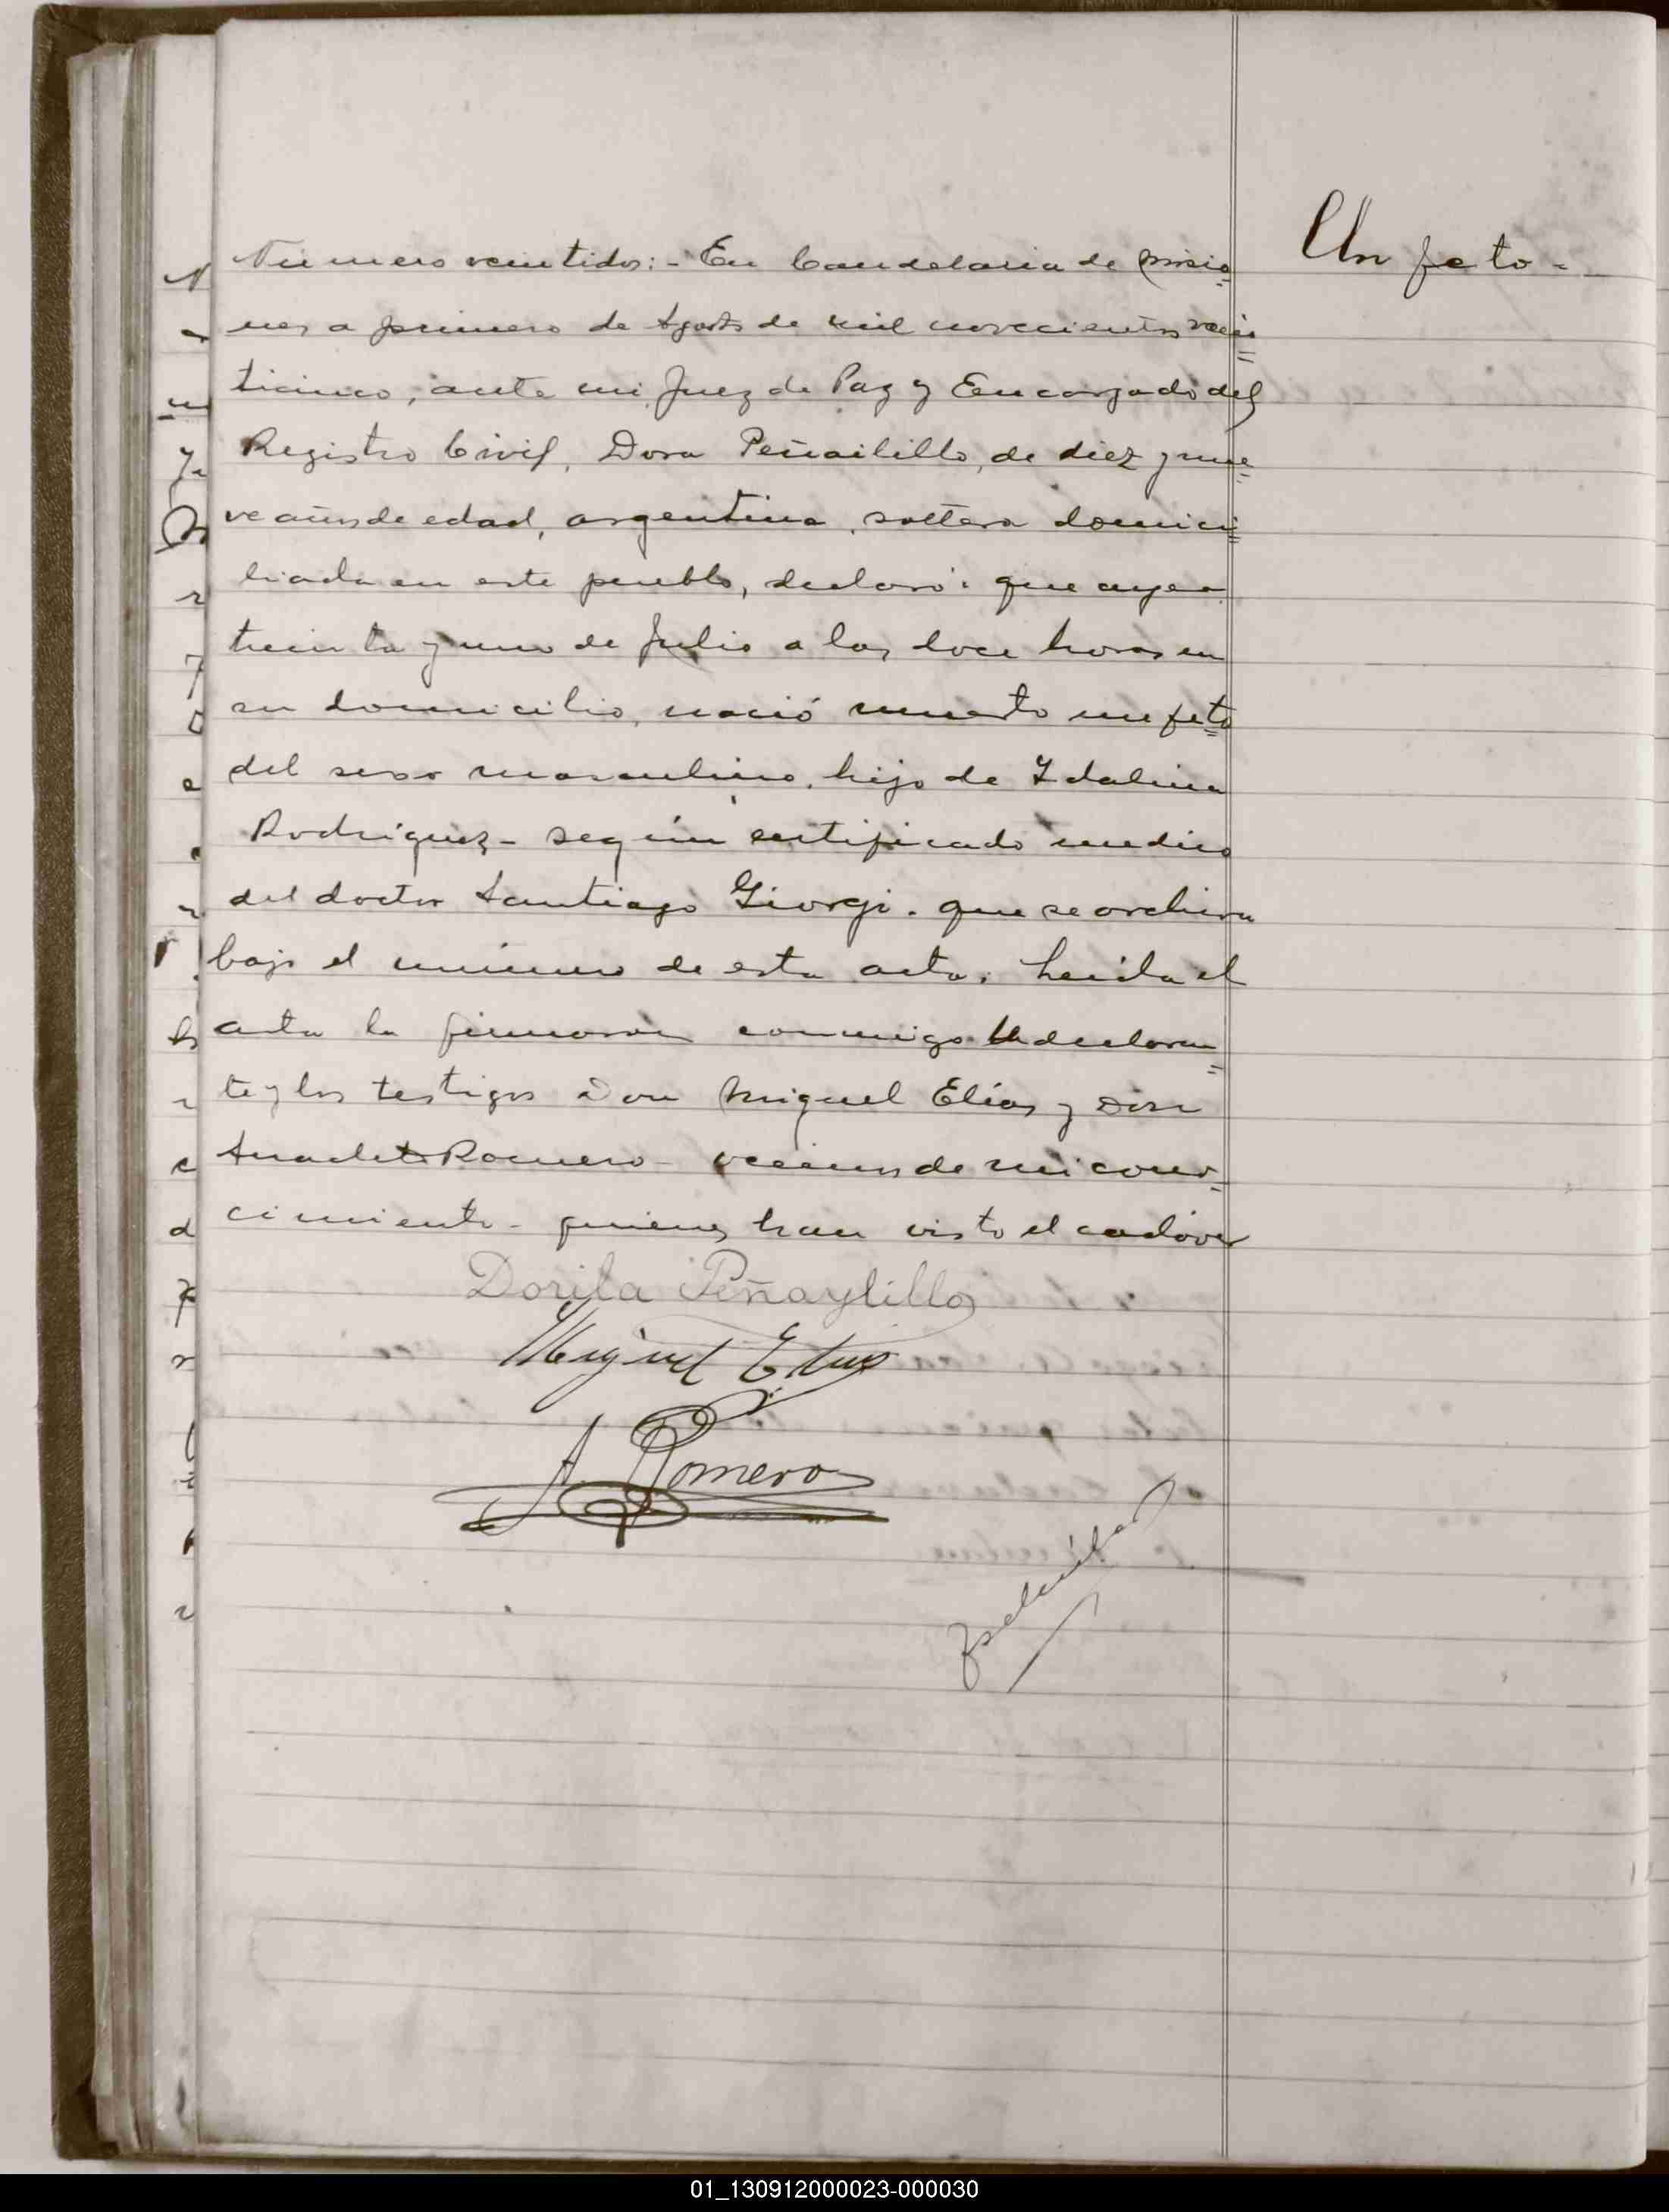 Número veintidos:- En Candelaria de Misio=
nes a primero de Agosto de mil novecientos vein=
ticinco, ante mi Juez de Paz y Encargado del
Registro Civil, Dora Peñailillo, de diez y nue=
ve años de edad, argentina, soltera domici=
liada en este pueblo, declaró: que ayer
treinta y uno de Julio a las doce horas en
su domicilio, nació muerto un feto
del sexo masculino, hijo de Idalina
Rodriguez - según certificado medico
del doctor Santiago Giorgi. que se archiva
bajo el número de esta acta. Leida el
acta la firmaron conmigo la declaran=
te y los testigos Don Miguel Elías y Don
Anacleto Romero - vecinos de mi cono=
cimiento - quienes han visto el cadáver
Dorila Peñaylillo
Miguel Elias
A. Romero
Un feto -
01_130912000023-000030